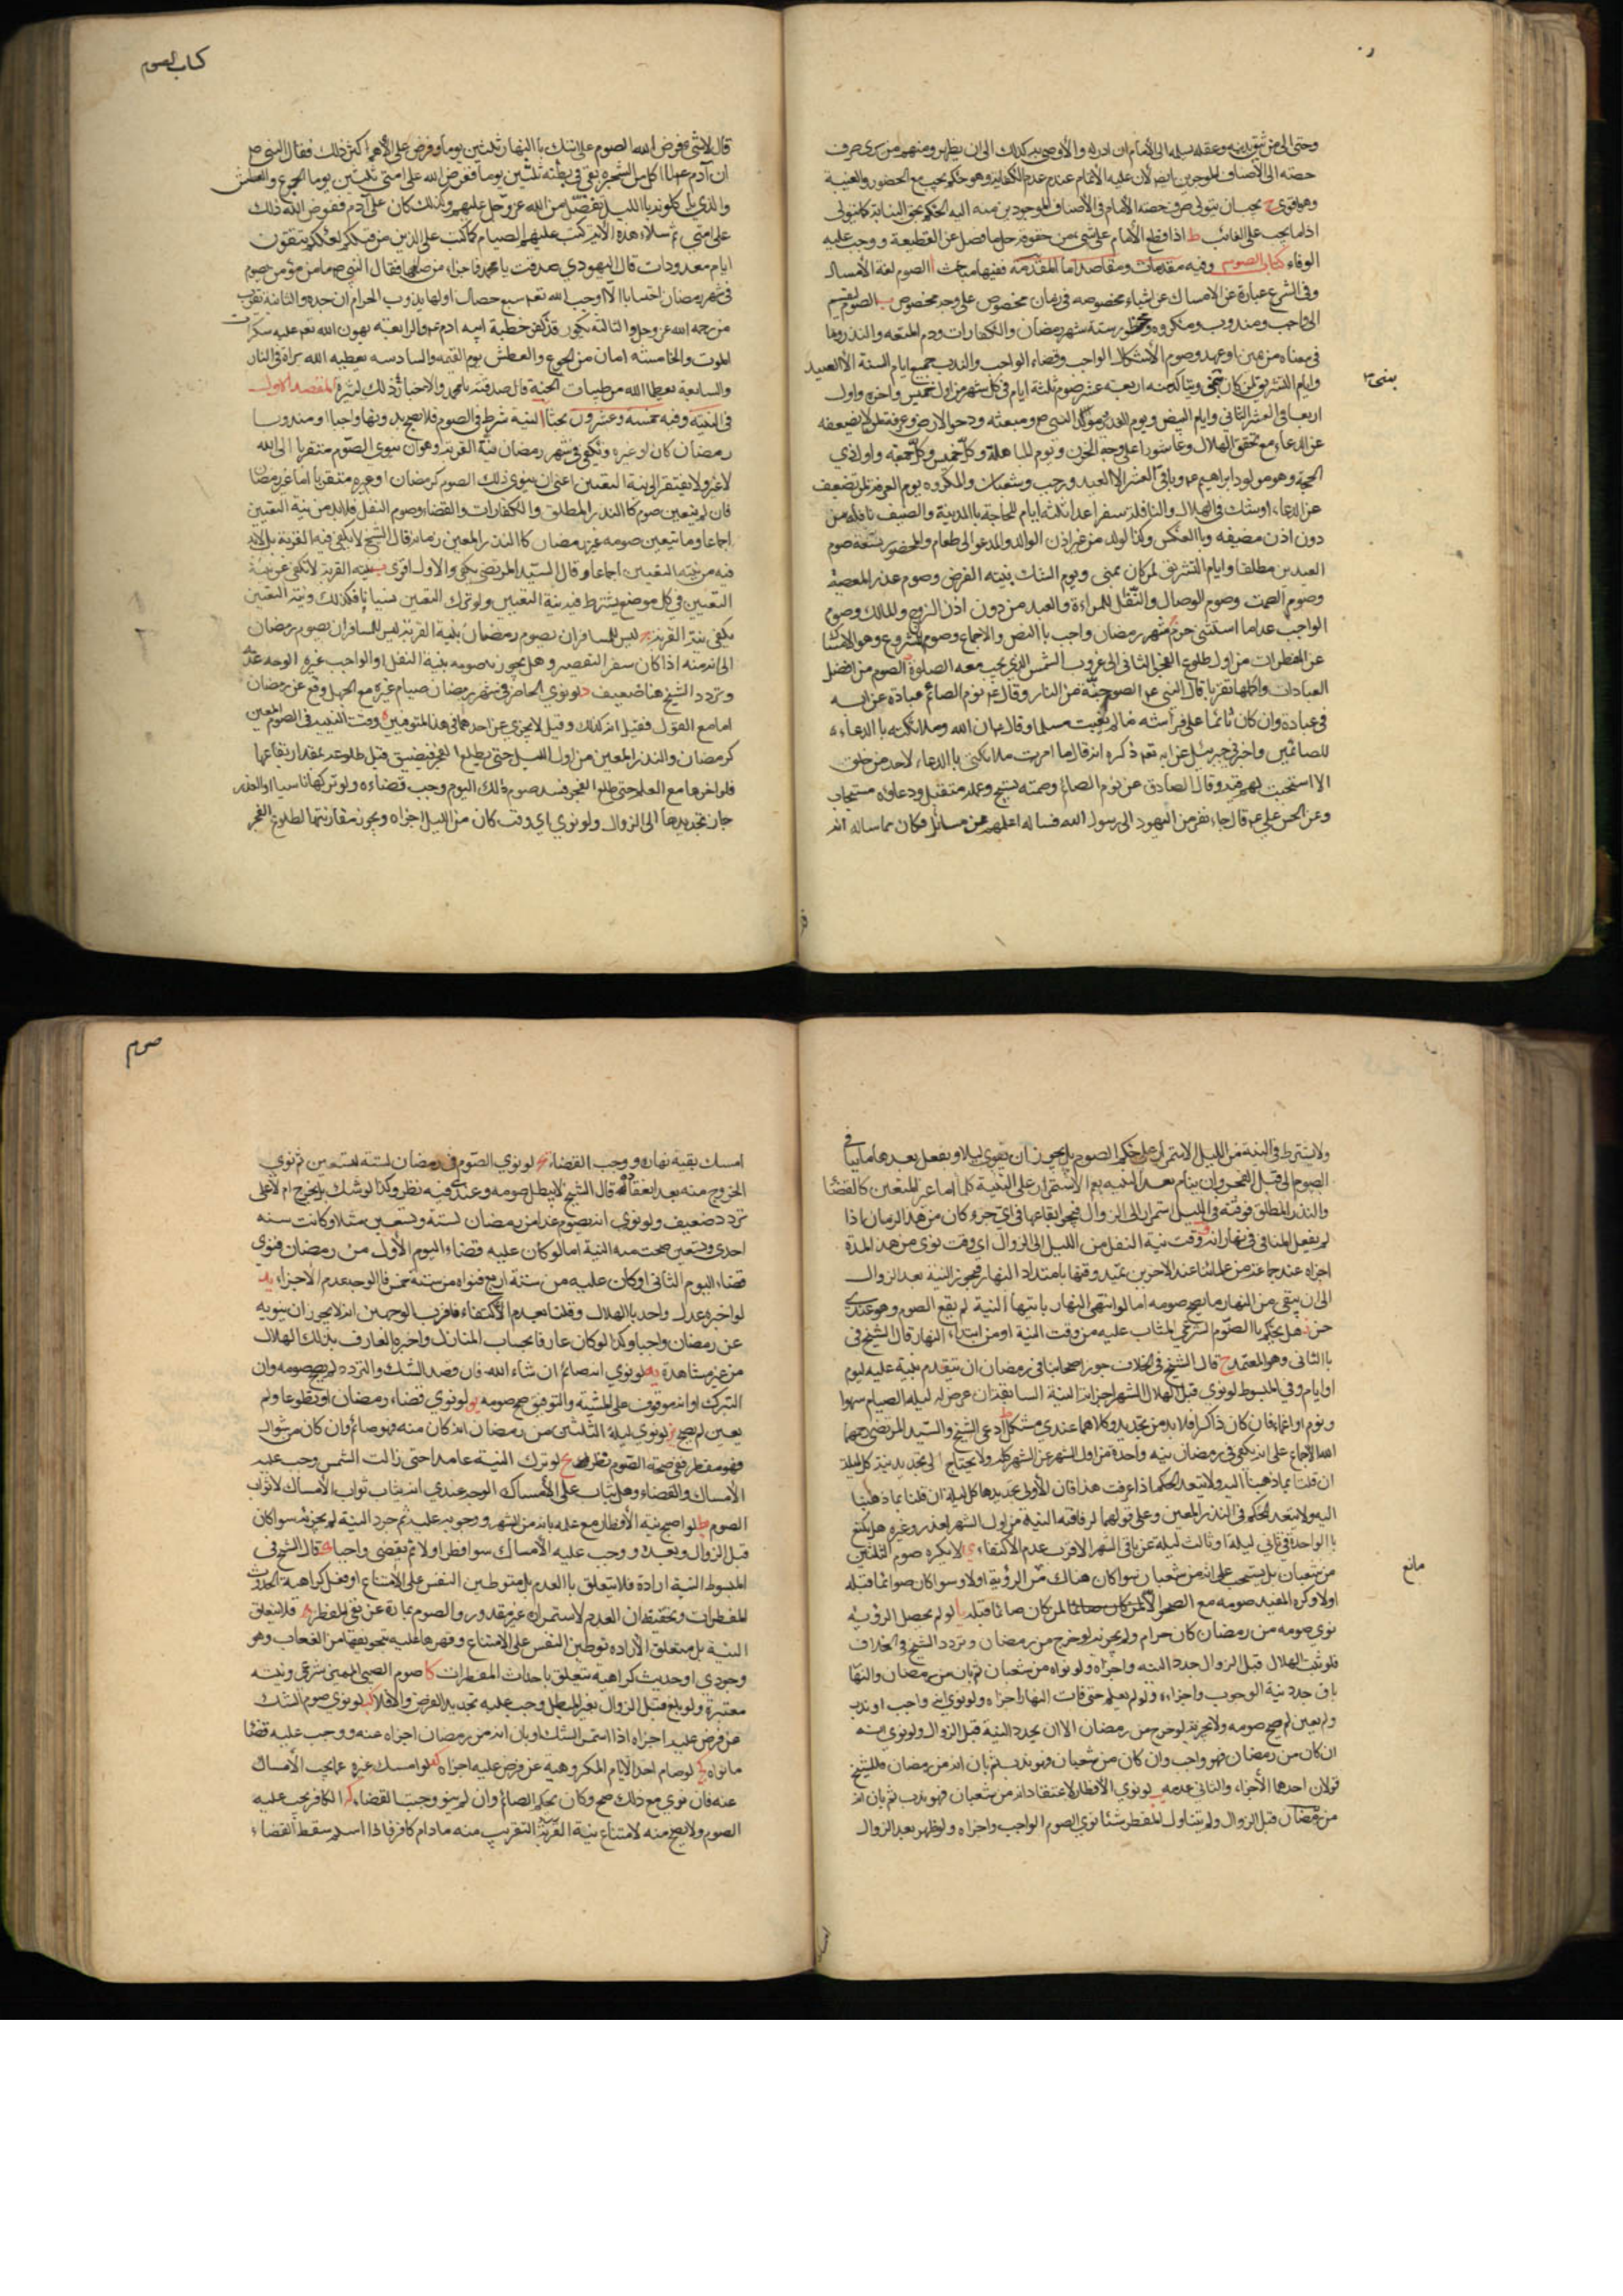 كتاب الصوم
وحتى الى من يثق بدينه وعقله ليسلمه الى الامام ان ادركه والا اوصى به كذلك الى ان يظهر ومنهم من يرى صرف
حصته الى الاصناف الموجودين ايضا لان عليه الاتمام عند عدم الكفاية وهو حكم يجب مع الحضور والغيبة
وهو اقوى ح يجب ان يتولى صرف حصة الامام في الاصناف الموجودين منه اليه الحكم بحق النيابة كما يتولى
اداء ما يجب على الغائب ط اذا قطع الامام على شيء من حقوقه حل ما فضل عن القطيعة ووجب عليه
الوفاء كتاب الصوم وفيه مقدمات ومقاصد اما المقدمة ففيها مباحث ا الصوم لغة الامساك
وفي الشرع عبارة عن الامساك عن اشياء مخصوصة في زمان مخصوص على وجه مخصوص ب الصوم ينقسم
الى واجب ومندوب ومكروه ومحظور ستة شهر رمضان والكفارات ودم المتعة والنذر وما
في معناه من يمين او عهد وصوم الاعتكاف الواجب وقضاء الواجب والندب جميع ايام السنة الا العيدين
وايام التشريق لمن كان بمنى ويتاكد منه اربعة عشر صوم ثلثة ايام في كل شهر من اول خميس واخره واول
بمنى
اربعا في العشر الثاني وايام البيض ويوم الغدير ومولد النبي ص ومبعثه ودحو الارض وعرفة لمن لا يضعفه
عن الدعاء مع تحقق الهلال وعاشوراء على وجه الحزن ويوم المباهلة وكل خميس وكل جمعة واول ذي
الحجة وهو مولد ابراهيم ع وباقي العشر الا العيد ورجب وشعبان والمكروه يوم العرفة لمن يضعف
عن الدعاء او شك في الهلال والنافلة سفرا عدا ثلثة ايام للحاجة بالمدينة والضيف نافلة من
دون اذن مضيفه وبالعكس وكذا الولد من غير اذن الوالد والمدعو الى طعام والمحظور تسعة صوم
العيدين مطلقا وايام التشريق لمن كان بمنى ويوم الشك بنية الفرض وصوم نذر المعصية
وصوم الصمت وصوم الوصال والتنفل للمراءة والعبد من دون اذن الزوج والمالك وصوم
الواجب عدا ما استثنى ج صوم شهر رمضان واجب بالنص والاجماع وصوم المشروع وهو الامساك
عن المفطرات من اول طلوع الفجر الثاني الى غروب الشمس الذي يجب معه الصلوة د الصوم من افضل
العبادات واكملها تقربا قال النبي ع الصوم جنة من النار وقال ع نوم الصائم عبادة
في عبادة وان كان نائما على فراشه ما لم يغتب مسلما وقال ان الله وملائكته بالدعاء
للصائمين واخبرني جبرئيل عن ربه تعه ذكره انه قال ما امرت ملائكتي بالدعاء لاحد من خلقي
الا استجبت لهم فيه وقال الصادق ع نوم الصائم وصمته تسبيح وعمله متقبل ودعاؤه مستجاب
وعن الحسن علي ع قال جاء نفر من اليهود الى رسول الله فساله اعلمهم عن مسائل فكان مما ساله انه
قال لاي شي فرض الله الصوم على امتك بالنهار ثلثين يوما وفرض على الامم اكثر من ذلك فقال النبي ص
ان آدم ع لما اكل من الشجرة بقي في بطنه ثلثين يوما ففرض الله على امتي ثلثين يوما الجوع والعطش
والذي ياكلونه بالليل تفضل من الله عز وجل عليهم وكذلك كان على آدم ففرض الله ذلك
على امتي ثم تلا هذه الاية كتب عليكم الصيام كما كتب على الذين من قبلكم لعلكم تتقون
اياما معدودات قال اليهودي صدقت يا محمد فما جزاء من صامها فقال النبي ص ما من مؤمن يصوم
في شهر رمضان احتسابا الا اوجب الله تعه سبع خصال اولها يذوب الحرام من جسده والثانية يقرب
من رحمة الله عز وجل والثالثة يكون قد كفر خطيئة ابيه ادم ع والرابعة يهون الله تعه عليه سكرات
الموت والخامسة امان من الجوع والعطش يوم القيمة والسادسة يعطيه الله براة من النار
والسابعة يطعمه الله من طيبات الجنة قال صدقت يا محمد والاخبار في ذلك كثيرة المقصد الاول
في النية وفيه خمسة وعشرون بحثا ا النية شرط في الصوم فلا يصح بدونها واجبا او مندوبا
رمضان كان او غيره ويكفي في شهر رمضان نية القربة وهو ان ينوي الصوم متقربا الى الله
لا غير ولا يفتقر الى نية التعيين اعني ان ينوي ذلك الصوم كرمضان او غيره متقربا اما غير رمضان
فان لم يتعين صومه كالنذر المطلق والكفارات والقضاء وصوم النفل فلا بد من نية التعيين
اجماعا وما يتعين صومه غير رمضان كالنذر المعين زمانه قال الشيخ لا يكفي فيه القربة بل لا بد
فيه من نية التعيين اجماعا وقال السيد المرتضى يكفي والاول اقوى ب نية القربة لا تكفي عن نية
التعيين في كل موضع يشترط فيه نية التعيين ولو ترك التعيين نسيانا فكذلك ونية التعيين
يكفي نية القربة ج ليس للمسافر ان يصوم رمضان بنية القربة ليس للمسافر ان يصوم رمضان
الى انه منه اذا كان سفر التقصير وهل يجوز له صومه بنية النفل او الواجب غيره الوجه عدمه
وتردد الشيخ هنا ضعيف د لو نوى الحاضر في شهر رمضان صيام غيره مع الجهل وقع عن رمضان
اما مع القول فقيل انه كذلك وقيل لا يجزي عن احدهما في هذا المتوهمين ه وقت النية في الصوم المعين
كرمضان والنذر المعين من اول الليل حتى يطلع الفجر فيتضيق قبل طلوعه بمقدار ايقاعها
فلو اخرها مع العلم حتى طلع الفجر فسد صوم ذلك اليوم ووجب قضاءه ولو تركها ناسيا او لعذر
جاز تجديدها الى الزوال ولو نوى اي وقت كان من الليل اجزاه ويجوز مقارنتها لطلوع الفجر
صوم
ولا يشترط في النية من الليل الاستمرار على حكم الصوم بل يجوز ان ينوي ليلا ويفعل بعدها ما ينافي
الصوم الى قبل الفجر وان ينام بعد النية مع الاستمرار على النية كلها اما غير المتعين كالقضاء
والنذر المطلق فوقته في الليل استمر الى الزوال فيجوز ايقاعها في اي جزء كان من هذا الزمان اذا
لم يفعل المنافي في نهاره و وقت نية النفل من الليل الى الزوال اي وقت نوى من هذا المدة
اجزاه عند جماعة من علمائنا عند الاخرين يمتد وقتها بامتداد النهار فيجوز النية بعد الزوال
الى ان يبقى من النهار ما يصح صومه اما لو انتهى النهار بانتهاء النية لم يقع الصوم وهو عندي
حسن ز هل يحكم بالصوم الشرعي المثاب عليه من وقت النية او من ابتداء النهار قال الشيخ في
بالثاني وهو المعتمد ح قال الشيخ في الخلاف جوز اصحابنا في رمضان ان يتقدم بنية عليه ليوم
او ايام وفي المبسوط لو نوى قبل الهلال الشهر اجزاته النية السابقة ان عرض له ليلة الصيام سهو
ونوم او اغماء فان كان ذاكرا فلا بد من تجديد وكلاهما عندي مشكل ط ادعى الشيخ والسيد المرتضى رحمهما
الله الاجماع على انه يكفي في رمضان نية واحدة من اول الشهر عن الشهر كله ولا يحتاج الى تجديد نية كل ليلة
ان قلنا بما ذهبنا اليه ولا يتعد الحكم اذا عرفت هذا فان الاولى تجديدها كل ليلة ان قلنا بما ذهبنا
اليه ولا يتعد الحكم في النذر المعين وعلى قولهما لو فاتته النية من اول الشهر لعذر وغيره هل يكتفي
بالواحدة في ثاني ليلة او ثالث ليلة عن باقي الشهر الاقرب عدم الاكتفاء ي لا يكره صوم الثلثين
من شعبان بل يستحب على انه من شعبان سواء كان هناك مانع من الرؤية اولا وسواء كان صوائما قبله
مانع
اولا وكره المفيد صومه مع الصحو الا لمن كان صائما لمن كان صائما قبله يا لو لم يحصل الرؤية
نوى صومه من رمضان كان حرام ولم يجزئه لو خرج من رمضان وتردد الشيخ في الخلاف
فلو ثبت الهلال قبل الزوال جدد النية واجزاه ولو نواه من شعبان ثم بان من رمضان والنهار
باق جدد نية الوجوب واجزاء ولو لم يعلم حتى فات النهار اجزاه ولو نوى انه واجب او ندب
ولم يعين لم يصح صومه ولا يجزئه لو خرج من رمضان الا ان يجدد النية قبل الزوال ولو نوى انه
ان كان من رمضان فهو واجب وان كان من شعبان فهو ندب ثم بان انه من رمضان فللشيخ
قولان احدهما الاجزاء والثاني عدمه يب لو نوى الافطار لاعتقاد انه من شعبان فهو ندب ثم بان انه
من رمضان قبل الزوال ولم يتناول المفطر شيئا نوى الصوم الواجب واجزاه ولو ظهر بعد الزوال
امسك بقية نهاره ووجب القضاء يج لو نوى الصوم في رمضان لسنة معين ثم نوى
الخروج منه بعد انعقاده قال الشيخ لا يبطل صومه وعندي فيه نظر وكذا لو شك هل يخرج ام لا على
تردد ضعيف ولو نوى انه يصوم غدا من رمضان لسنة وتسعين مثلا وكانت سنة
احدى وتسعين صحت منه النية اما لو كان عليه قضاء اليوم الاول من رمضان فنوى
قضاء اليوم الثاني او كان عليه من سنة اربع فنواه من سنة خمس فالوجه عدم الاجزاء يد
لو اخبره عدل واحد بالهلال وقلنا بعدم الاكتفاء فاقرب الوجهين انه لا يجوز ان ينويه
عن رمضان واجبا وكذا لو كان عارفا بحساب المنازل واخبره العارف بذلك الهلال
من غير مشاهدة يه لو نوى انه صائم ان شاء الله فان قصد الشك والتردد لم يصح صومه وان
التبرك او انه موقوف على المشية والتوفيق صح صومه يو لو نوى قضاء رمضان او تطوعا ولم
يعين لم يصح يز لو نوى ليلة الثلثين من رمضان انه كان منه فهو صائم وان كان من شوال
فهو مفطر ففي صحة الصوم نظر يح لو ترك النية عامدا حتى زالت الشمس وجب عليه
الامساك والقضاء وهل يثاب على الامساك الوجه عندي انه يثاب ثواب الامساك لا ثواب
الصوم يط لو اصبح بنية الافطار مع علمه بانه من الشهر ووجوبه عليه ثم جدد النية لم يجزئه سواء كان
قبل الزوال وبعده ووجب عليه الامساك سواء افطر اولا ثم يقضي واجبا ك قال الشيخ في
المبسوط النية ارادة فلا يتعلق بالعدم بل متوطين النفس على الامتناع او فعل كراهة لحدوث
المفطرات وتحقيقه ان العدم لاستمراره غير مقدور والصوم عبارة عن نفي المفطر فلا يتعلق
النية بل متعلق الارادة توطين النفس على الامتناع وقهرها عليه بتخويفها من العقاب وهو
وجودي او حديث كراهية يتعلق باحداث المفطرات كا صوم الصبي المميز شرعي ونيته
معتبرة ولو بلغ قبل الزوال بغير المبطل وجب عليه تجديد الفرض والا فلا كب لو نوى صوم الشك
عن فرض عليه اجزاه اذا استمر الشك او بان انه من رمضان اجزاه عنه ووجب عليه قضاء
ما نواه كج لو صام احد الايام المكروهة عن فرض عليه اجزاه كد لو امسك غيره عما يجب الامساك
عنه فان نوى مع ذلك صح وكان بحكم الصائم وان لم ينو وجب القضاء كه الكافر يجب عليه
الصوم ولا يصح منه لامتناع نية القربة التقرب منه ما دام كافرا فاذا اسلم سقط القضاء